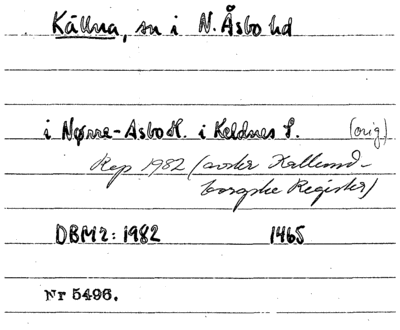 Källna, sn i N. Åsbo hd
i Nørre-Asbo H. i Keldnes S. (orig)
Rep 1982 (acster Kallund-
borgske Register)
DBM 2: 1982 1465
Nr 5496.